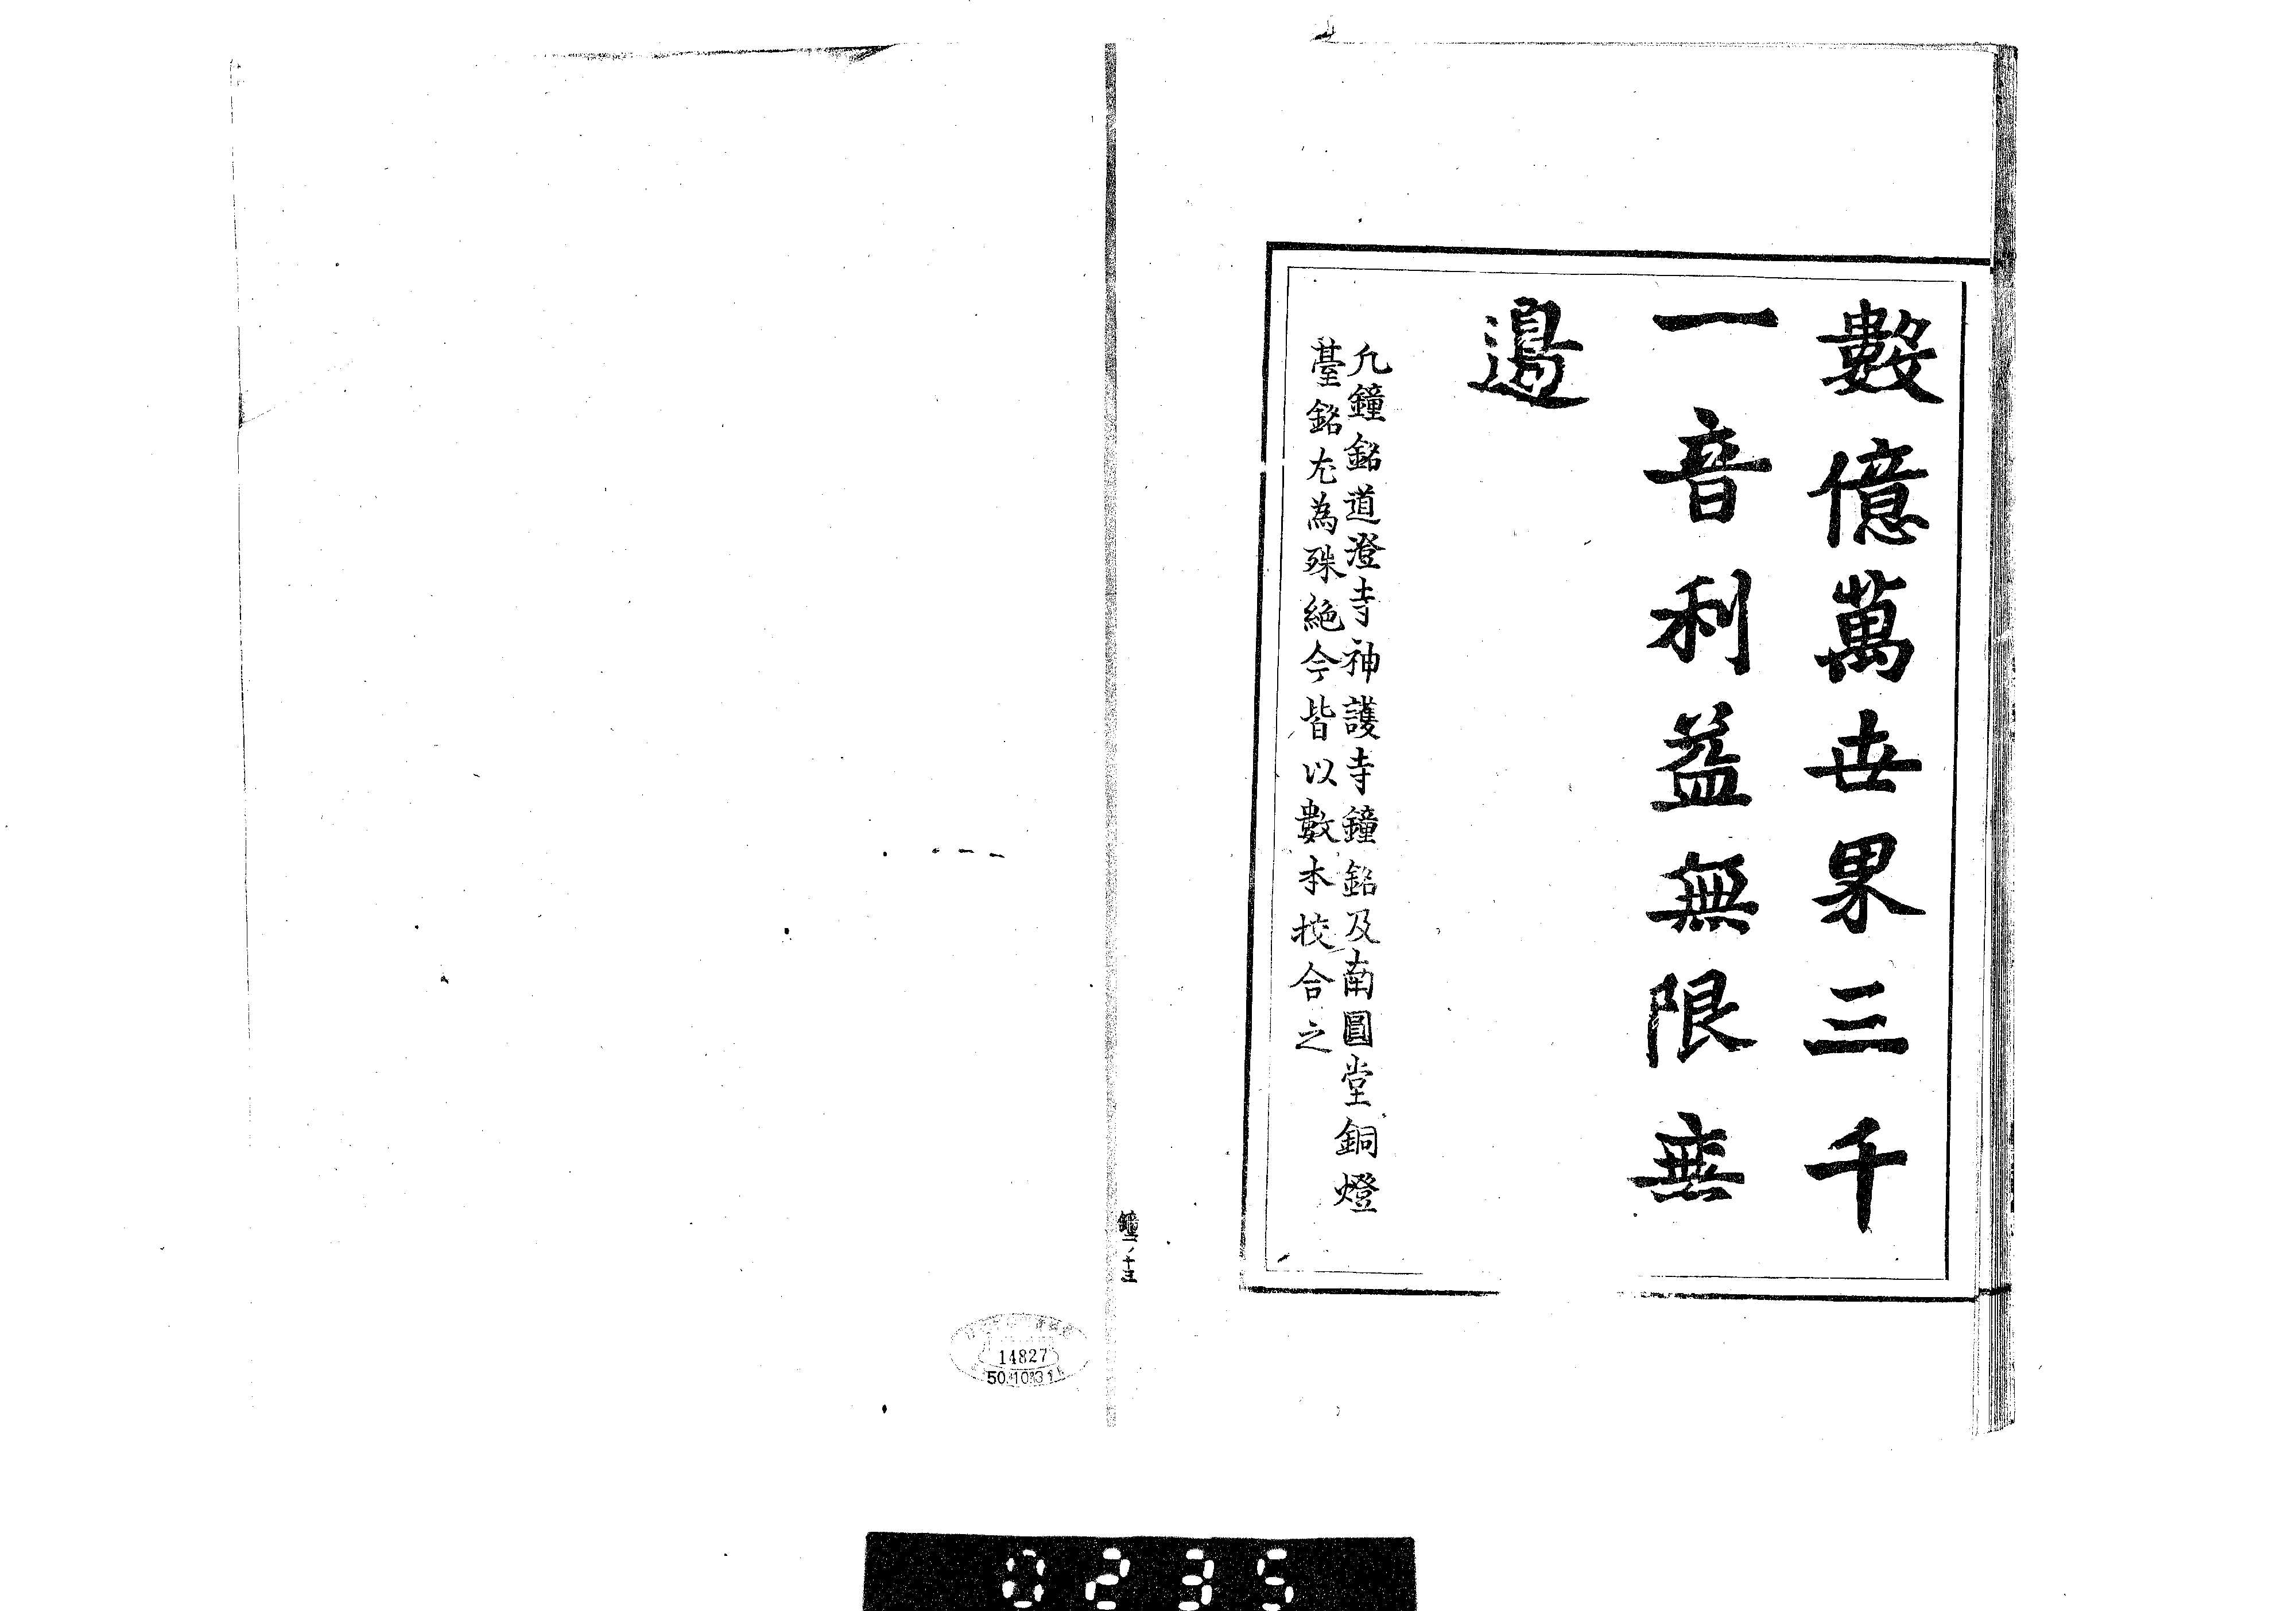 數億萬世界三千
一音利益無限無
邊
凡鐘銘道澄寺神護寺鐘銘及南圓堂銅燈
臺銘尤為殊絶今皆以數本挍合之
鐘一ノ十三
14827
50.10.31
0235